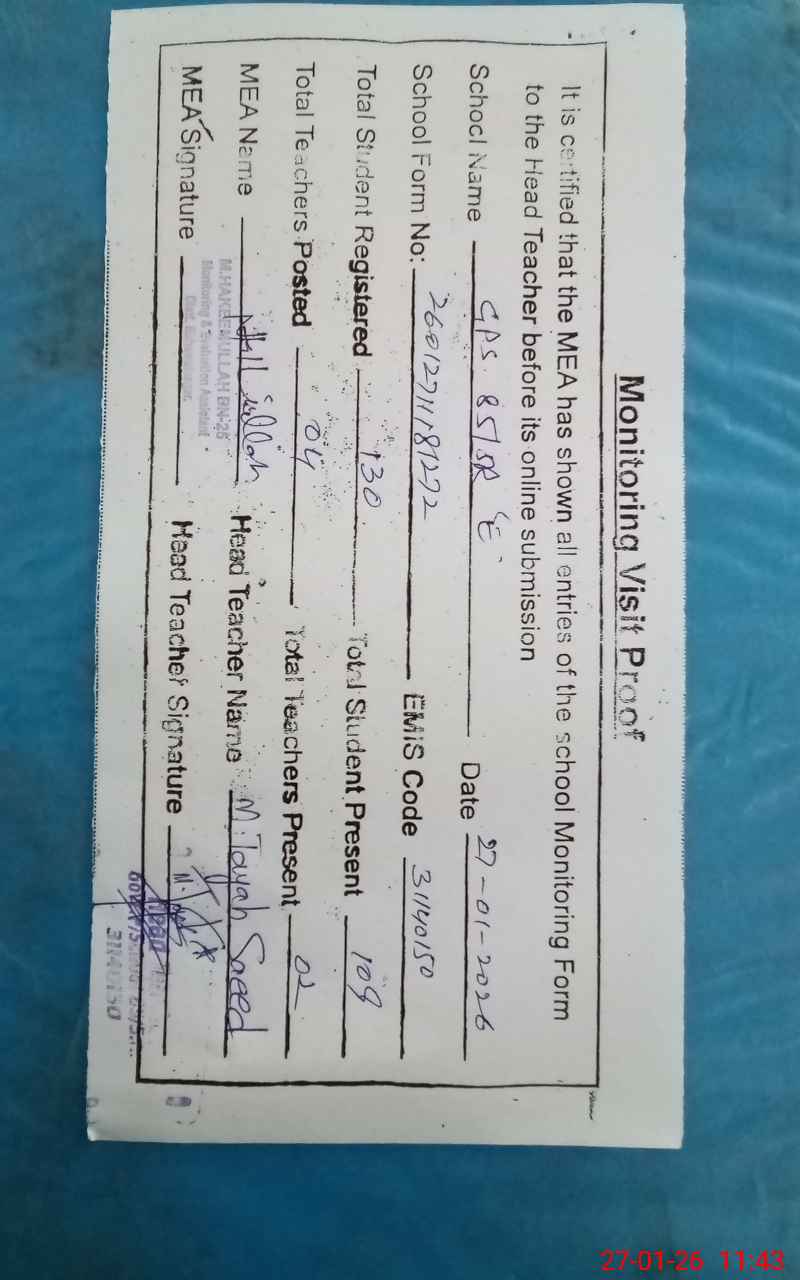 Monitoring Visit Proof
It is certified that the MEA has shown all entries of the school Monitoring Form
to the Head Teacher before its online submission
School Name GPS. 85/5R 'E' Date 27-01-2026
School Form No: 26012711181272 EMIS Code 31140150
Total Student Registered 130 Total Student Present 109
Total Teachers Posted 04 Total Teachers Present 02
MEA Name Head Teacher Name M. Tayab Saeed
M.HAKEEMULLAH BN-25
Monitoring & Evaluation Assistant
MEA Signature Head Teacher Signature
31140150
27-01-26 11:43